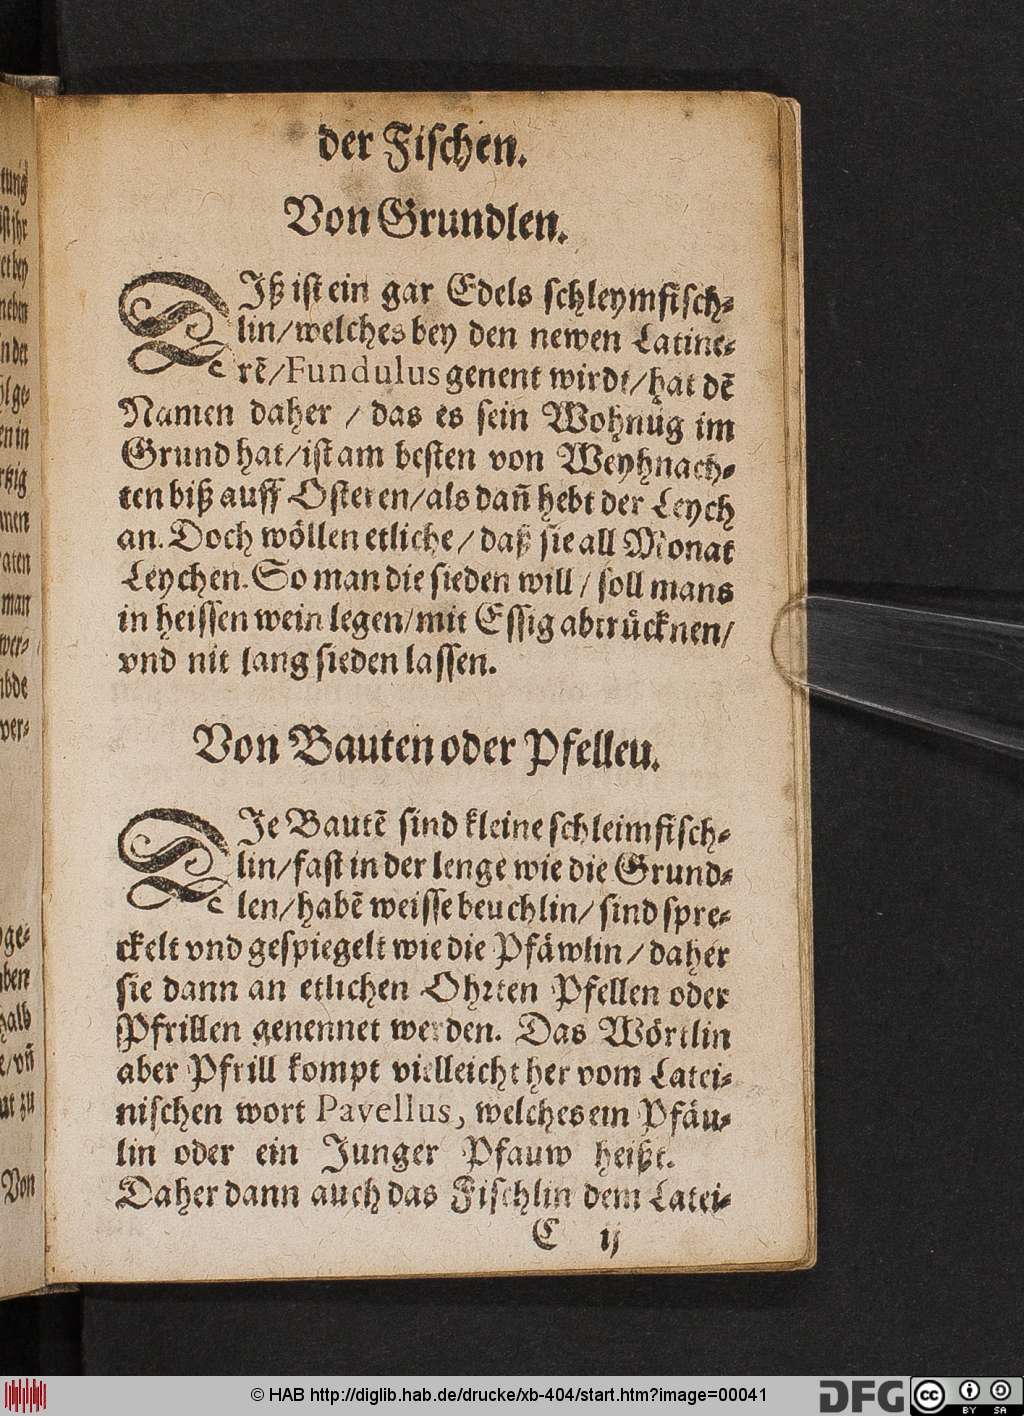 der Fischen.
Von Grundlen.
DIß ist ein gar Edels schleymfisch⸗
lin/ welches bey den newen Latine⸗
rẽ/ Fundulus genent wirdt/ hat dẽ
Namen daher / das es sein Wohnũg im
Grund hat/ ist am besten von Weyhnach⸗
ten biß auff Osteren/ als dañ hebt der Leych
an. Doch wöllen etliche/ daß sie all Monat
Leychen. So man die sieden will/ soll mans
in heissen wein legen/ mit Essig abtrücknen/
vnd nit lang sieden lassen.
Von Bauten oder Pfelleu.
DIe Bautẽ sind kleine schleimfisch⸗
lin/ fast in der lenge wie die Grund⸗
len/ habẽ weisse beuchlin/ sind spre⸗
ckelt vnd gespiegelt wie die Pfäwlin/ daher
sie dann an etlichen Ohrten Pfellen oder
Pfrillen genennet werden. Das Wörtlin
aber Pfrill kompt vielleicht her vom Latei⸗
nischen wort Pavellus, welches ein Pfäu⸗
lin oder ein Junger Pfauw heißt.
Daher dann auch das Fischlin dem Latei⸗
C ij
tung
ist jhr
et bey
neben
in der
en in
men
raten
man
wer⸗
ver⸗
ge⸗
halb
e/ vñ
ut zu
Von
© HAB http://diglib.hab.de/drucke/xb-404/start.htm?image=00041
DFG
cc
BY SA